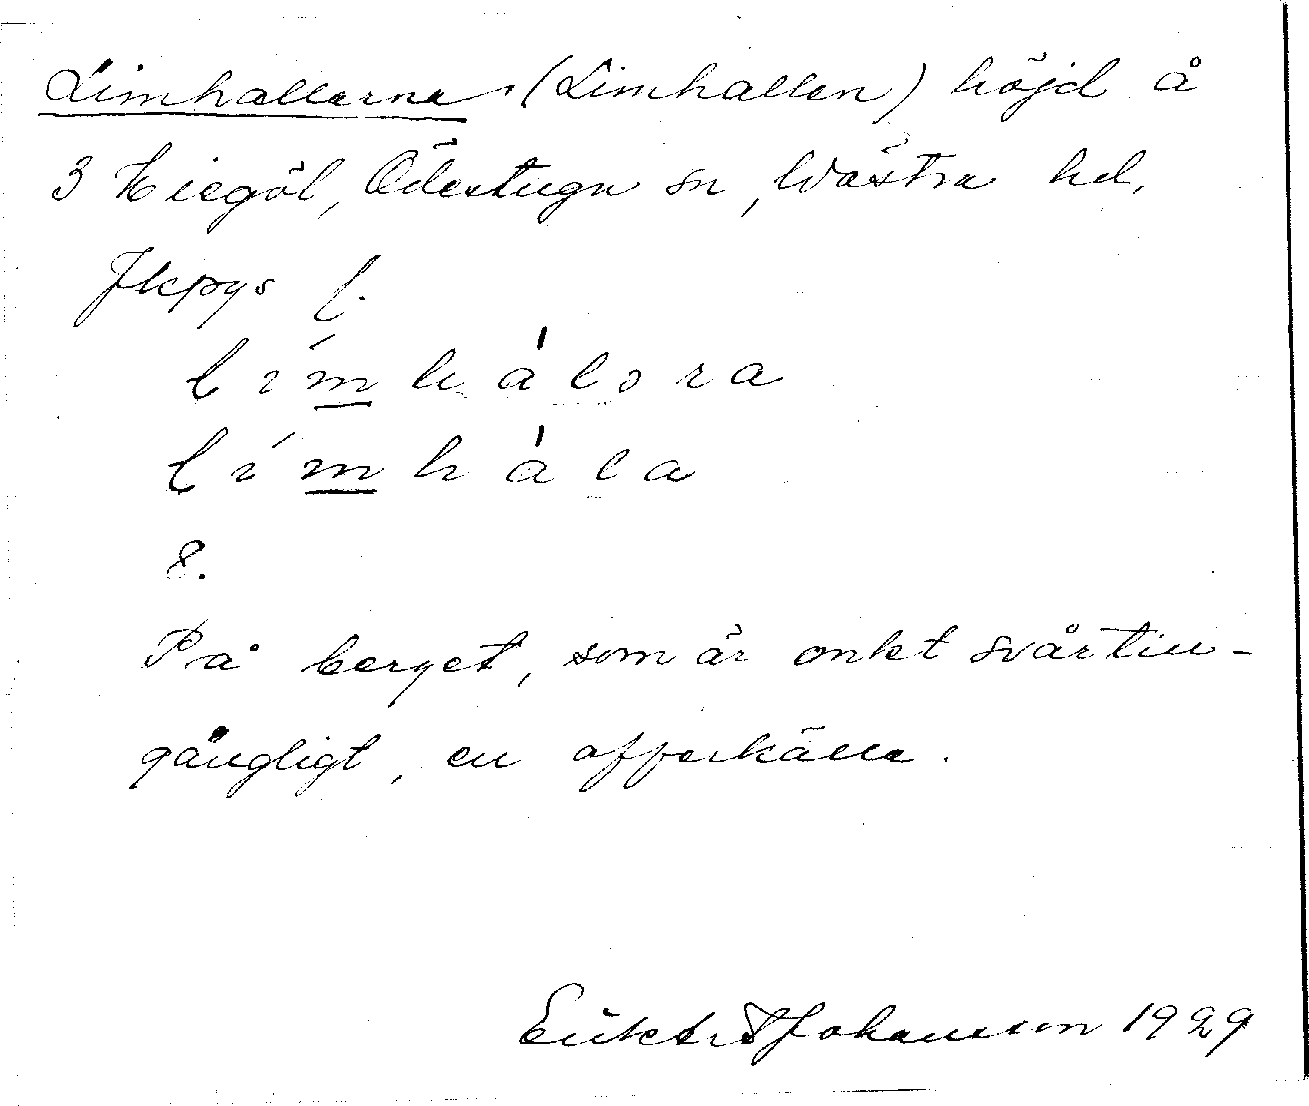 Limhallarna (Limhallen) höjd å
3 Ödestugu sn, Västra hd,
Jkpgs l.
límhálora
límhála
8.
På berget, som är enkt svårtill-
gängligt, en offerkälla.
Johansson 1929